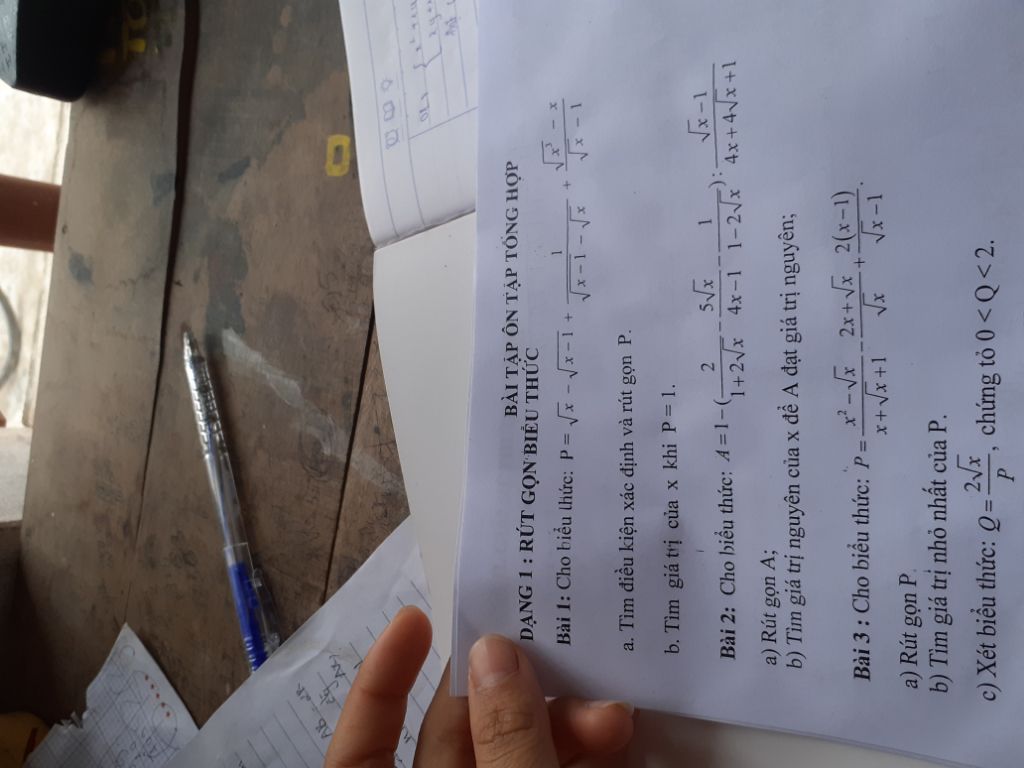 BÀI TẬP ÔN TẬP TỔNG HỢP
DẠNG 1 : RÚT GỌN BIỂU THỨC
Bài 1: Cho biểu thức: P = √x − √(x − 1) + 1/(√(x − 1) − √x) + (√(x³) − x)/(√x − 1)
a. Tìm điều kiện xác định và rút gọn P.
b. Tìm giá trị của x khi P = 1.
Bài 2: Cho biểu thức: A = 1 − (2/(1+2√x) − 5√x/(4x−1) − 1/(1−2√x)) : (√x−1)/(4x+4√x+1)
a) Rút gọn A;
b) Tìm giá trị nguyên của x để A đạt giá trị nguyên;
Bài 3 : Cho biểu thức: P = (x²−√x)/(x+√x+1) − (2x+√x)/√x + 2(x−1)/(√x−1).
a) Rút gọn P
b) Tìm giá trị nhỏ nhất của P.
c) Xét biểu thức: Q = 2√x/P, chứng tỏ 0 < Q < 2.